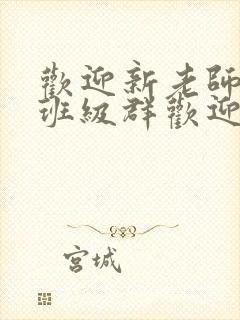 歡迎新老師
班級群歡迎
宮城